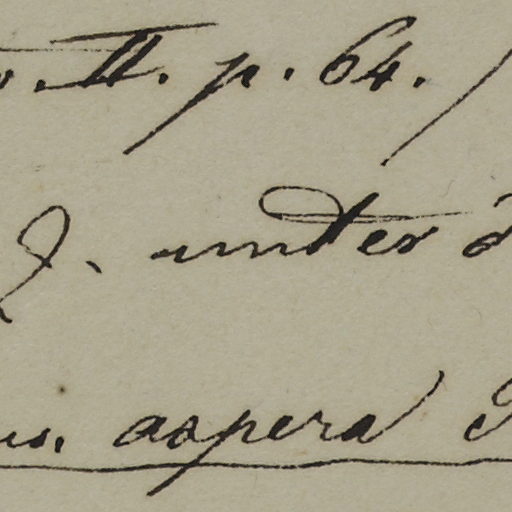 . II. p. 64.
J. under
us. aspera